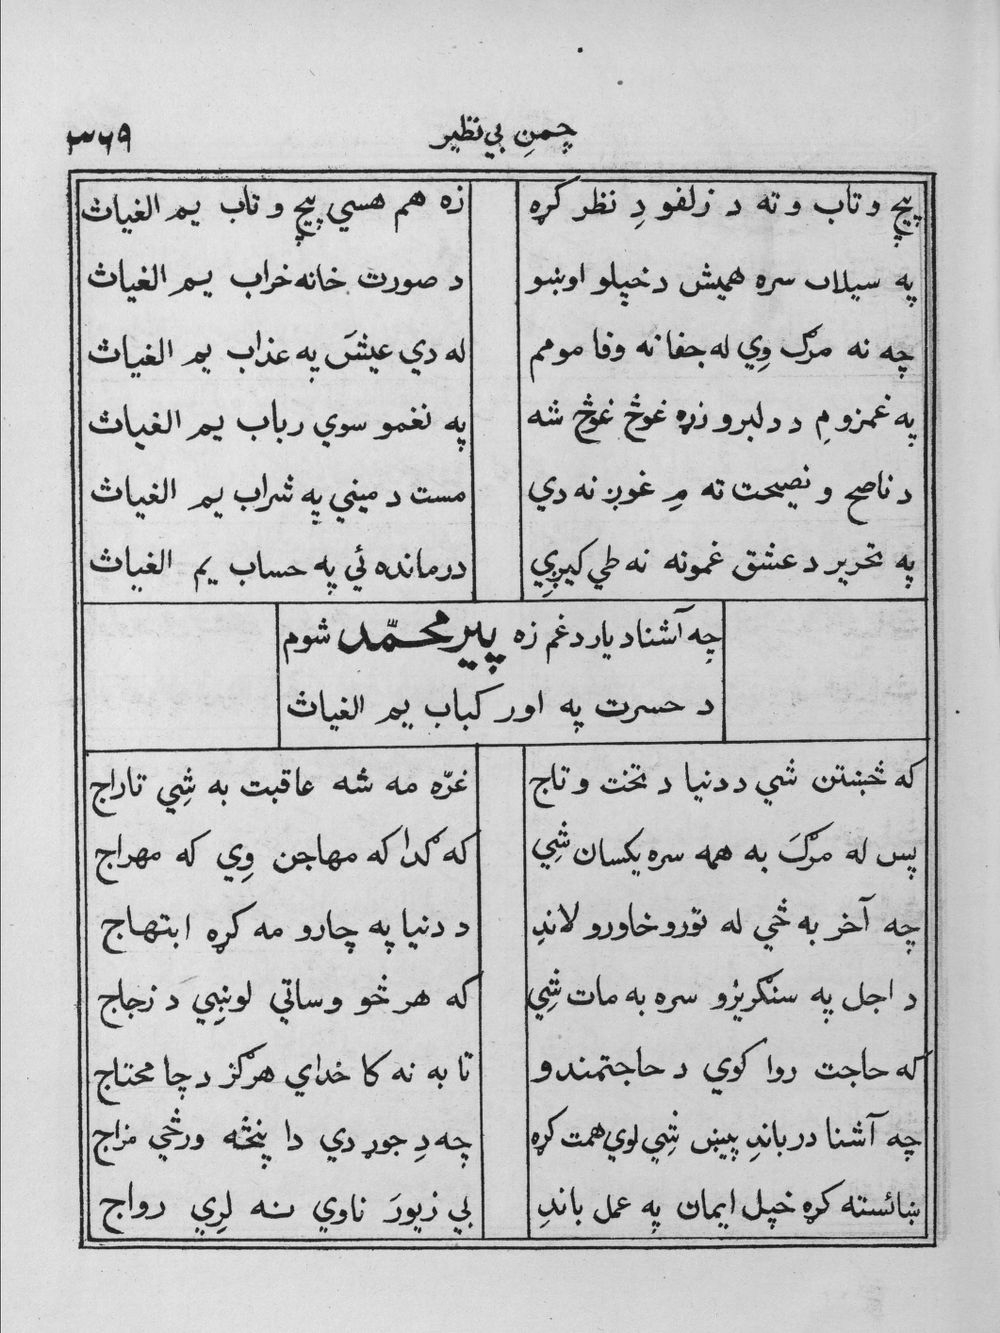 چمنِ بي نظير
۳۶۹
پيچ و تاب و ته د زلفو دِ نظر کړه
زه هم هسي پيچ و تاب يم الغياث
په سيلاب سره هميش د خپلو اوښو
د صورت خانه خراب يم الغياث
چه نه مرګ وِي له جفا نه وفا مومم
له دي عيشَ په عذاب يم الغياث
په غمزو مِ د دلبرو زړه غوڅ غوڅ شه
په نغمو سوي رباب يم الغياث
د ناصح و نصيحت ته مِ غوږ نه دي
مست د ميني په شراب يم الغياث
په تحرير د عشق غمونه نه طي کيږِي
درمانده ئي په حساب يم الغياث
چه آشنا د يار د غم زه پير محمّد شوم
د حسرت په اور کباب يم الغياث
که څښتن شي د دنيا د تخت و تاج
غرّه مه شه عاقبت به شِي تاراج
پس له مرګَ به همه سره يکسان شِي
که ګدا که مهاجن وِي که مهراج
چه آخر به ځي له تورو خاورو لاندِ
د دنيا په چارو مه کړه ابتهاج
د اجل په سنګريزو سره به مات شِي
که هر څو وساتي لوښِي د زجاج
که حاجت روا کوي د حاجتمندو
تا به نه کا خداي هرګز د چا محتاج
چه آشنا درباندِ پيښ شِي لوي همت کړه
چه دِ جوړ دي دا پنځه ورځي مزاج
ښائسته کړه خپل ايمان په عمل باندِ
بي زيورَ ناوي نه لرِي رواج